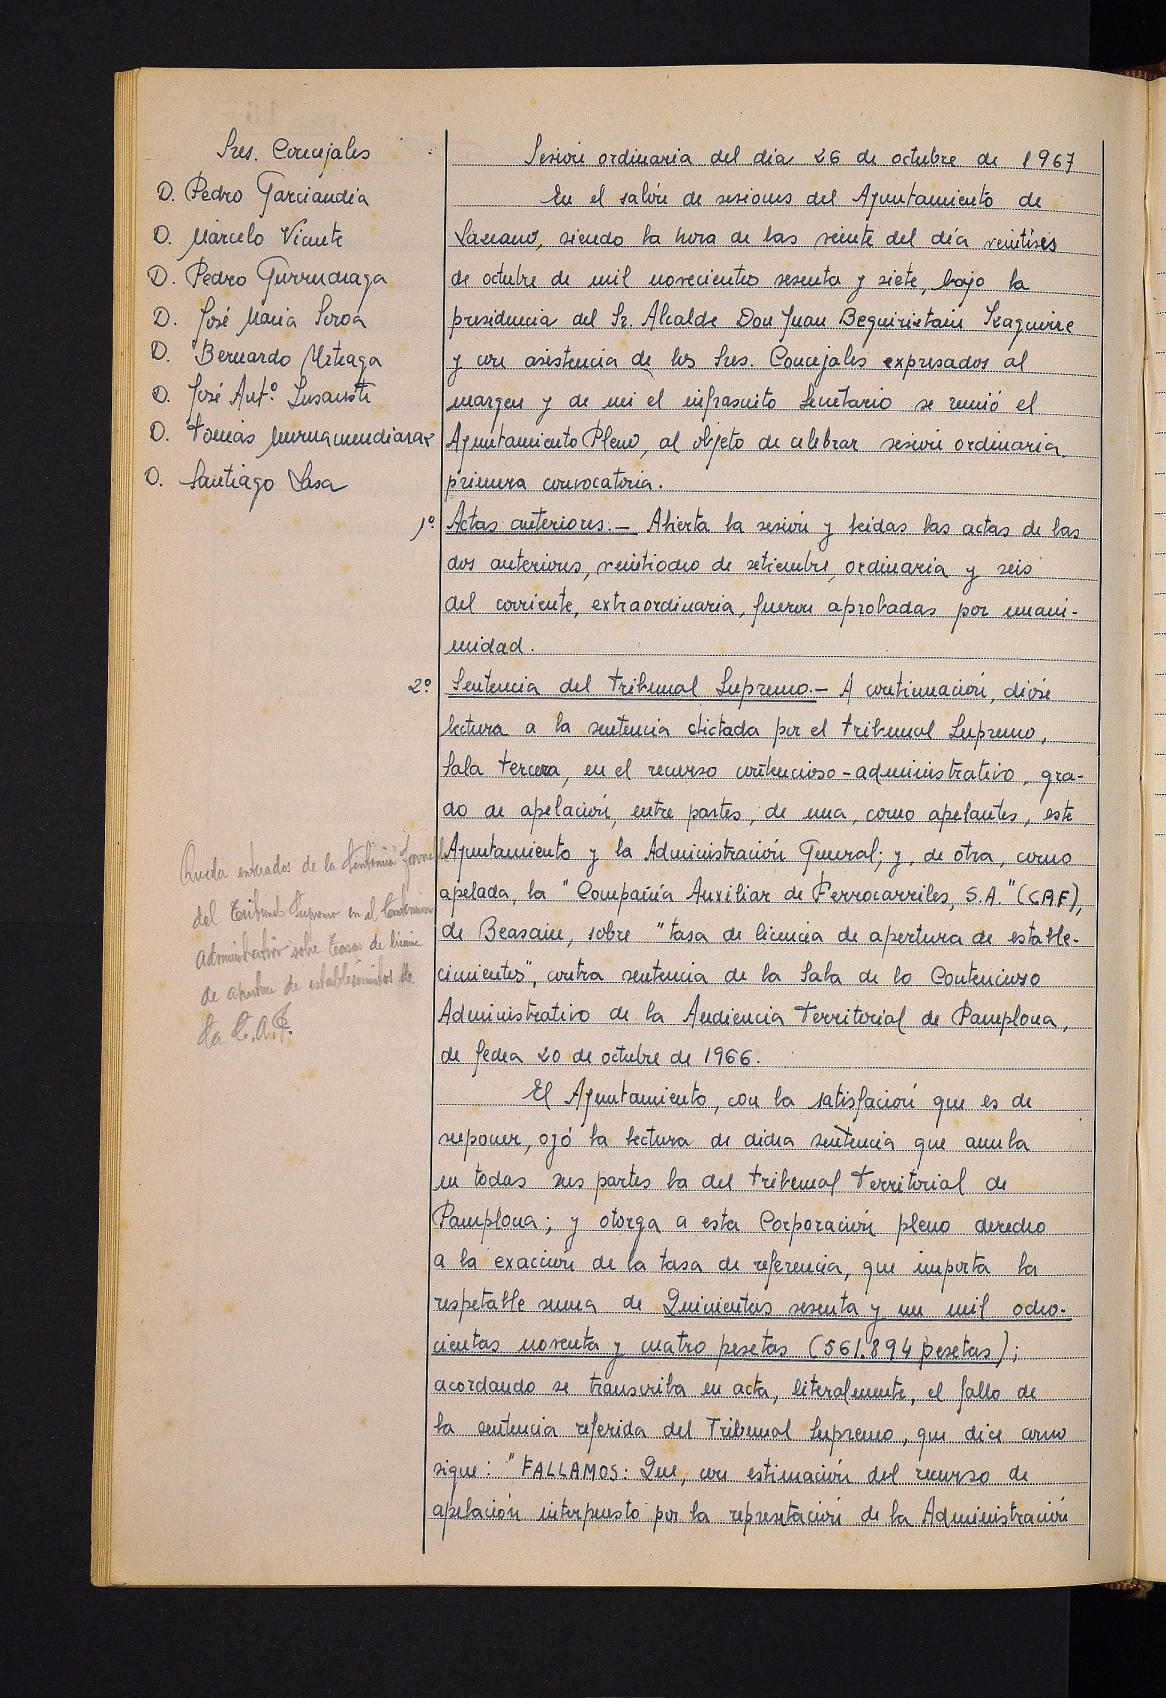 Sres. Concejales
D. Pedro Garciandia
D. Marcelo Vicente
D. Pedro Gurruchaga
D. José Maria Soroa
D. Bernardo Urteaga
D. José Antº. Insausti
D. Tomás Murnamendiaraz
D. Santiago Lasa
Sesión ordinaria del día 26 de octubre de 1967
En el salón de sesiones del Ayuntamiento de
Lazcano, siendo la hora de las veinte del día veintiseis
de octubre de mil novecientos sesenta y siete, bajo la
presidencia del Sr. Alcalde Don Juan Beguiristain Izaguirre
y con asistencia de los Sres. Concejales expresados al
margen y de mi el infrascrito Secretario se reunió el
Ayuntamiento Pleno, al objeto de celebrar sesión ordinaria
primera convocatoria.
1º Actas anteriores.— Abierta la sesión y leidas las actas de las
dos anteriores, veintiocho de setiembre, ordinaria y seis
del corriente, extraordinaria, fueron aprobadas por unani-
midad.
2º Sentencia del Tribunal Supremo.— A continuación, dióse
lectura a la sentencia dictada por el Tribunal Supremo,
Sala Tercera, en el recurso contencioso-administrativo, gra-
do de apelación, entre partes, de una, como apelantes, este
Ayuntamiento y la Administración General; y, de otra, como
apelada, la "Compañía Auxiliar de Ferrocarriles, S.A." (CAF),
de Beasain, sobre "tasa de licencia de apertura de estable-
cimientos", contra sentencia de la Sala de lo Contencioso
Administrativo de la Audiencia Territorial de Pamplona,
de fecha 20 de octubre de 1966.
Queda enterados de la Sentencia
del Tribunal Supremo en el
administrativo sobre tasas de licencia
de apertura de establecimientos de
la C.A.F.
El Ayuntamiento, con la satisfación que es de
suponer, oyó la lectura de dicha sentencia que anula
en todas sus partes la del Tribunal Territorial de
Pamplona; y otorga a esta Corporación pleno derecho
a la exacción de la tasa de referencia, que importa la
respetable suma de Quinientas sesenta y un mil ocho-
cientas noventa y cuatro pesetas (561.894 pesetas);
acordando se transcriba en acta, literalmente, el fallo de
la sentencia referida del Tribunal Supremo, que dice como
sigue: "FALLAMOS: Que, con estimación del recurso de
apelación interpuesto por la representación de la Administración